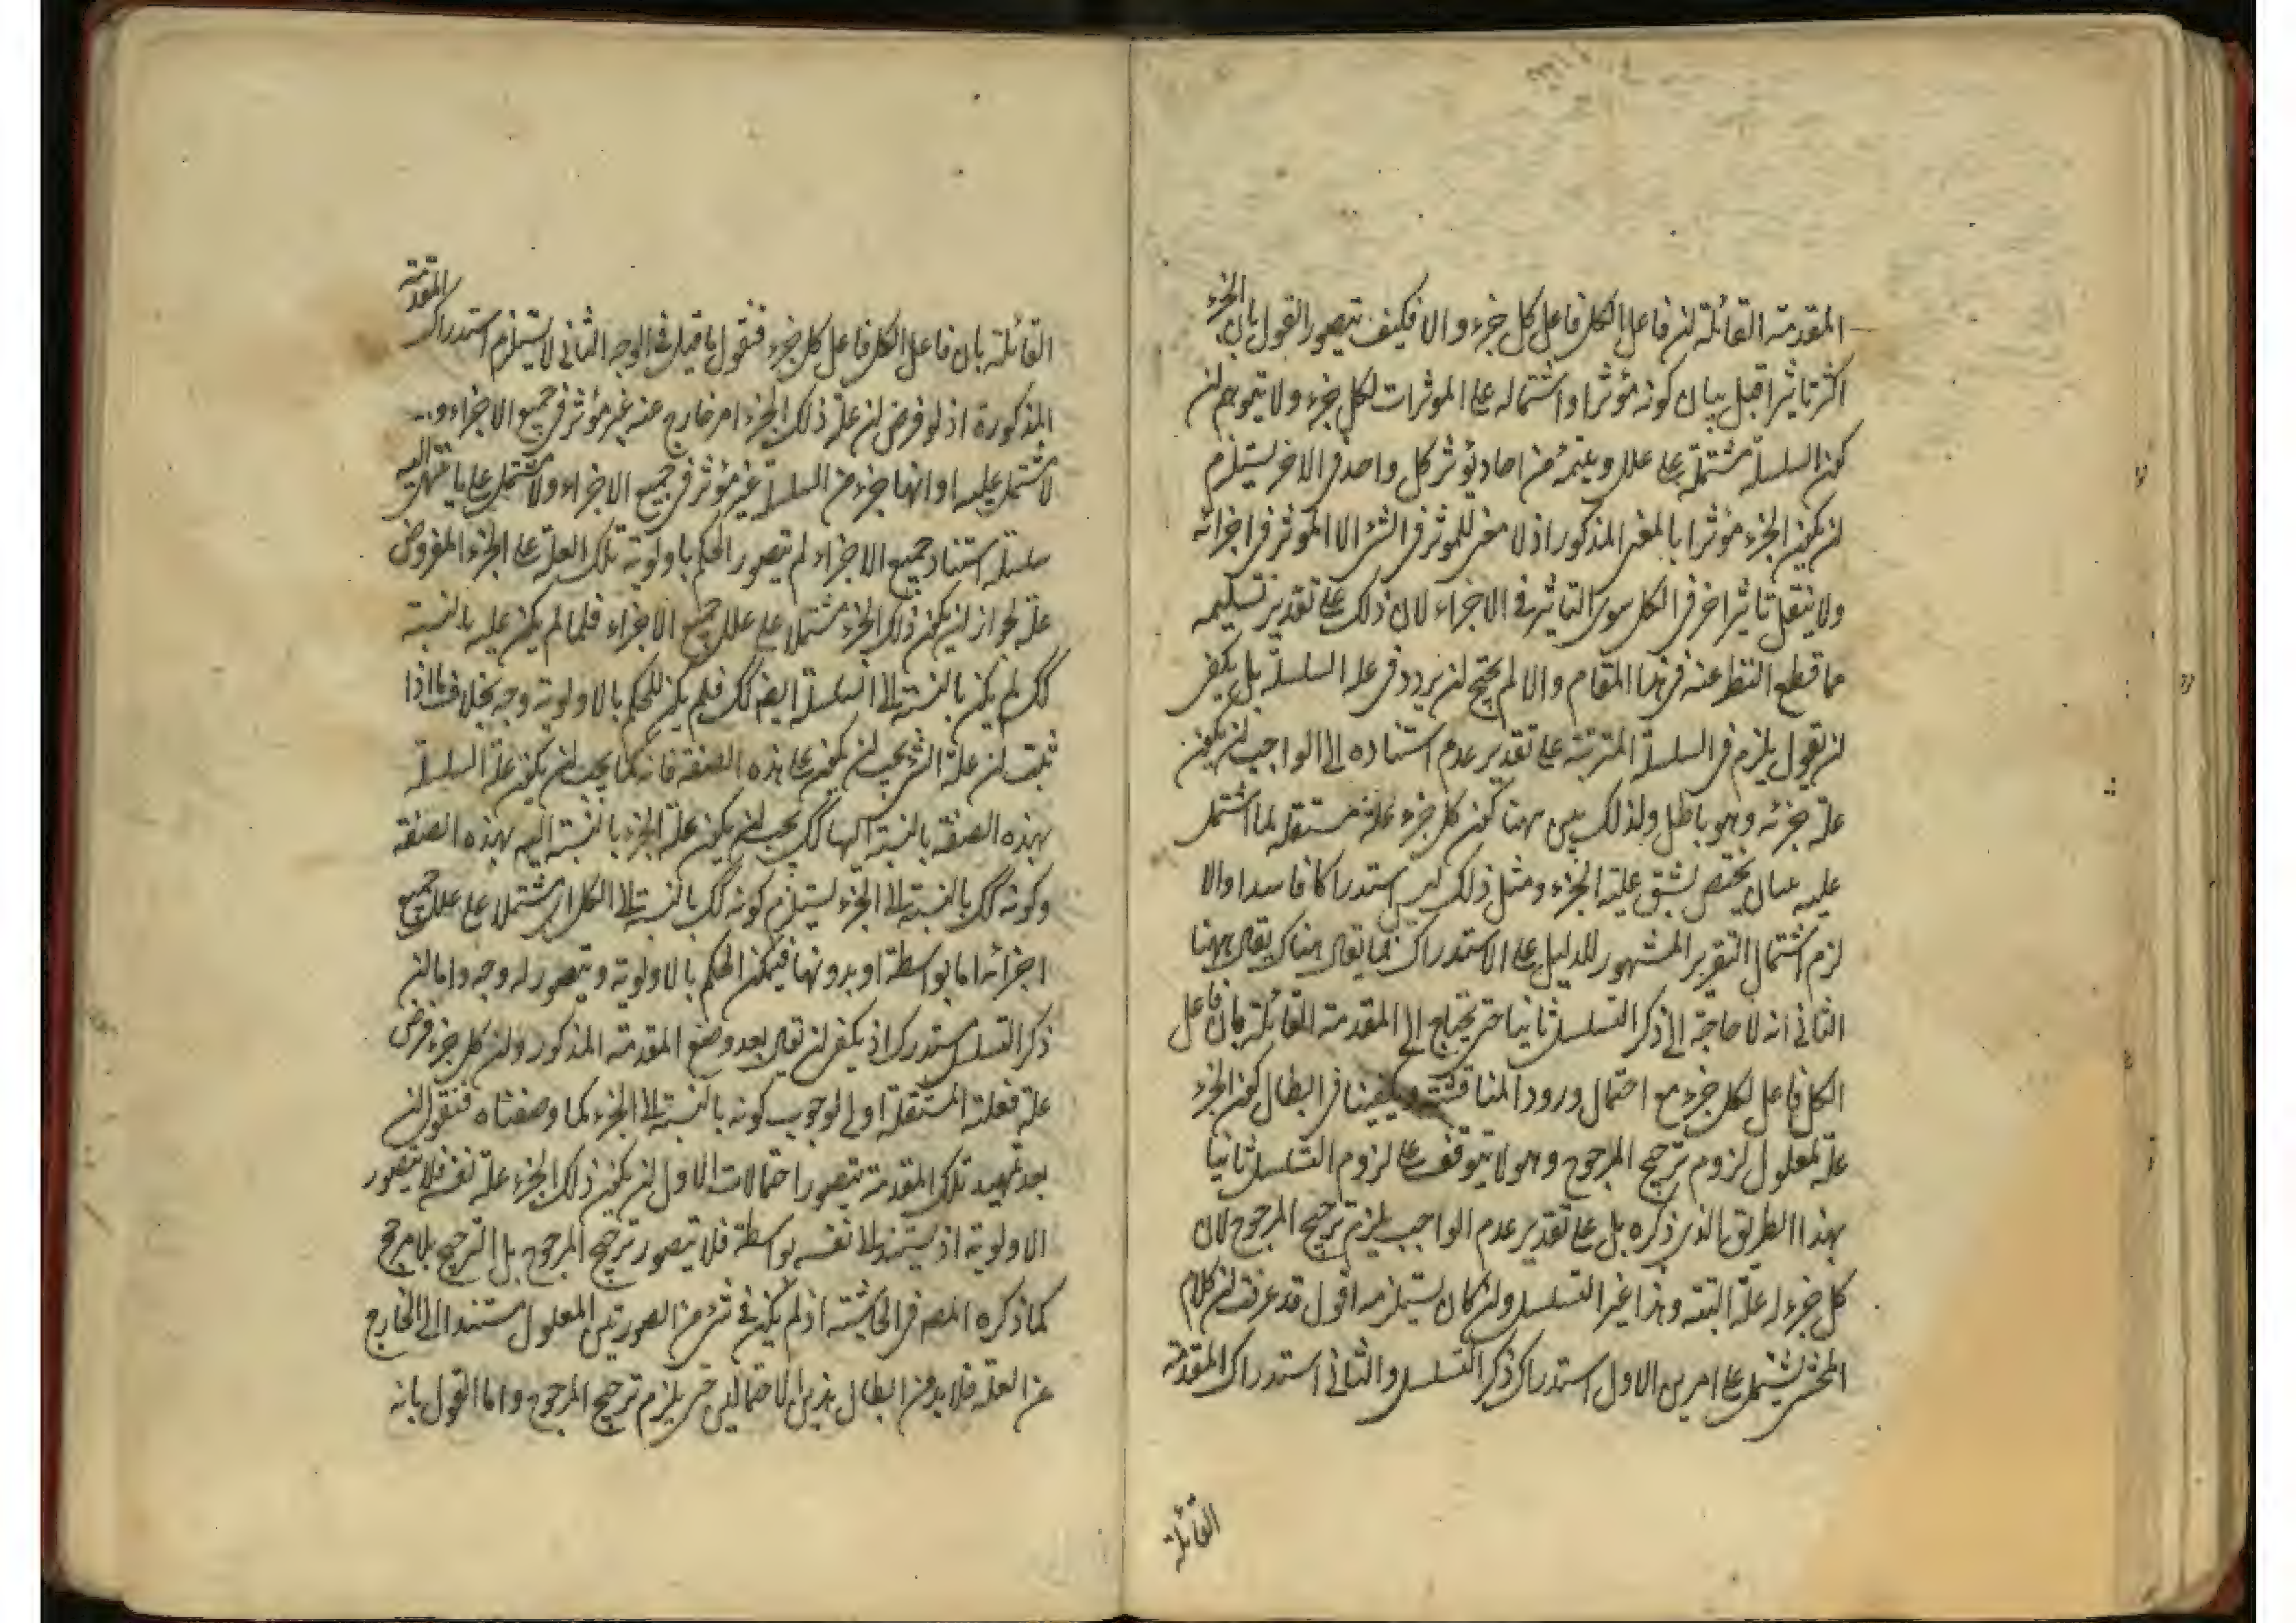 المقدمة القائلة ان فاعل الكل فاعل كل جزء والا فكيف يتصور القول بان الجزء
اكثر تاثيرا قبل بيان كونه مؤثرا واشتماله على الموثرات لكل جزء ولا يتوهم ان
كون السلسلة مشتملة على علل وملتئمة من احاد يوثر كل واحد في الاخر يستلزم
ان يكون الجزء مؤثرا بالمعنى المذكور اذ لا معنى للموثر في الشئ الا الموثر في اجزائه
ولا يتعقل تاثير اخر في الكل سوى التاثير في الاجزاء لان ذلك على تقدير تسليمه
مما قطع النظر عنه في هذا المقام والا لم يحتج ان يردد في علة السلسلة بل يكفي
ان يقول يلزم في السلسلة المترتبة على تقدير عدم استناده الى الواجب ان يكون
علة جزئه وهو باطل ولذلك بين ههنا كون كل جزء علة مستقلة بما اشتمل
عليه بيان يختص بشق علية الجزء ومثل ذلك ليس استدراكا فاسدا والا
لزم اشتمال التقرير المشهور للدليل على الاستدراك فما يقال هناك يقال ههنا
الثاني انه لا حاجة الى ذكر التسلسل ثانيا حتى يحتاج الى المقدمة القائلة بان فاعل
الكل فاعل لكل جزء مع احتمال ورود المناقشة ويكفينا في ابطال كون الجزء
علة لمعلول لزوم ترجيح المرجوح وهو لا يتوقف على لزوم التسلسل ثانيا
بهذا الطريق الذي ذكره بل على تقدير عدم الواجب يلزم ترجيح المرجوح لان
كل جزء له علة البتة وهذا غير التسلسل وان كان يستلزمه اقول قد عرفت ان كلام
المحشي يشتمل على امرين الاول استدراك ذكر التسلسل والثاني استدراك المقدمة
القائلة
القائلة بان فاعل الكل فاعل كل جزء فنقول ما قيل في الوجه الثاني لا يستلزم استدراك المقدمة
المذكورة اذ لو فرض ان علة ذلك الجزء امر خارج عنه غير مؤثر في جميع الاجزاء و
لا مشتمل عليه او انها جزء من السلسلة غير مؤثر في جميع الاجزاء ولا مشتمل على ما ينتهي اليه
سلسلة استناد جميع الاجزاء لم يتصور الحكم باولوية تلك العلة على الجزء المفروض
علة لجواز ان يكون ذلك الجزء مشتملا على علل جميع الاجزاء فلما لم يكن عليه بالنسبة
كك لم يكن بالنسبة الى السلسلة ايضا كك فلم يكن للحكم بالاولوية وجه بخلاف ما اذا
ثبت ان علة الشئ يجب ان يكون على هذه الصفة فانه كما يجب ان يكون علة السلسلة
بهذه الصفة بالنسبة اليها كك يجب ان يكون علة الجزء بالنسبة اليه بهذه الصفة
وكونه كك بالنسبة الى الجزء يستلزم كونه كك بالنسبة الى الكل اي مشتملا على علل جميع
اجزائه اما بواسطة او بدونها فيمكن الحكم بالاولوية ويتصور له وجه واما ان
ذكر التسلسل مستدرك اذ يكفي ان يقال بعد وضع المقدمة المذكور وان كل جزء فرض
علة فعلته المستقلة اولى لوجوب كونه بالنسبة الى الجزء كما وصفناه فنقول ان
بعد تمهيد تلك المقدمة يتصور احتمالات الاول ان يكون ذلك الجزء علة نفسه فلا يتصور
الاولوية اذ يستند الى نفسه بواسطة فلا يتصور ترجيح المرجوح بل الترجيح بلا مرجح
كما ذكره المصه في الحاشية اذ لم يكن في شئ من الصورتين المعلول مستندا الى الخارج
عن العلة فلا بد من ابطال هذين الاحتمالين حتى يلزم ترجيح المرجوح واما القول بانه